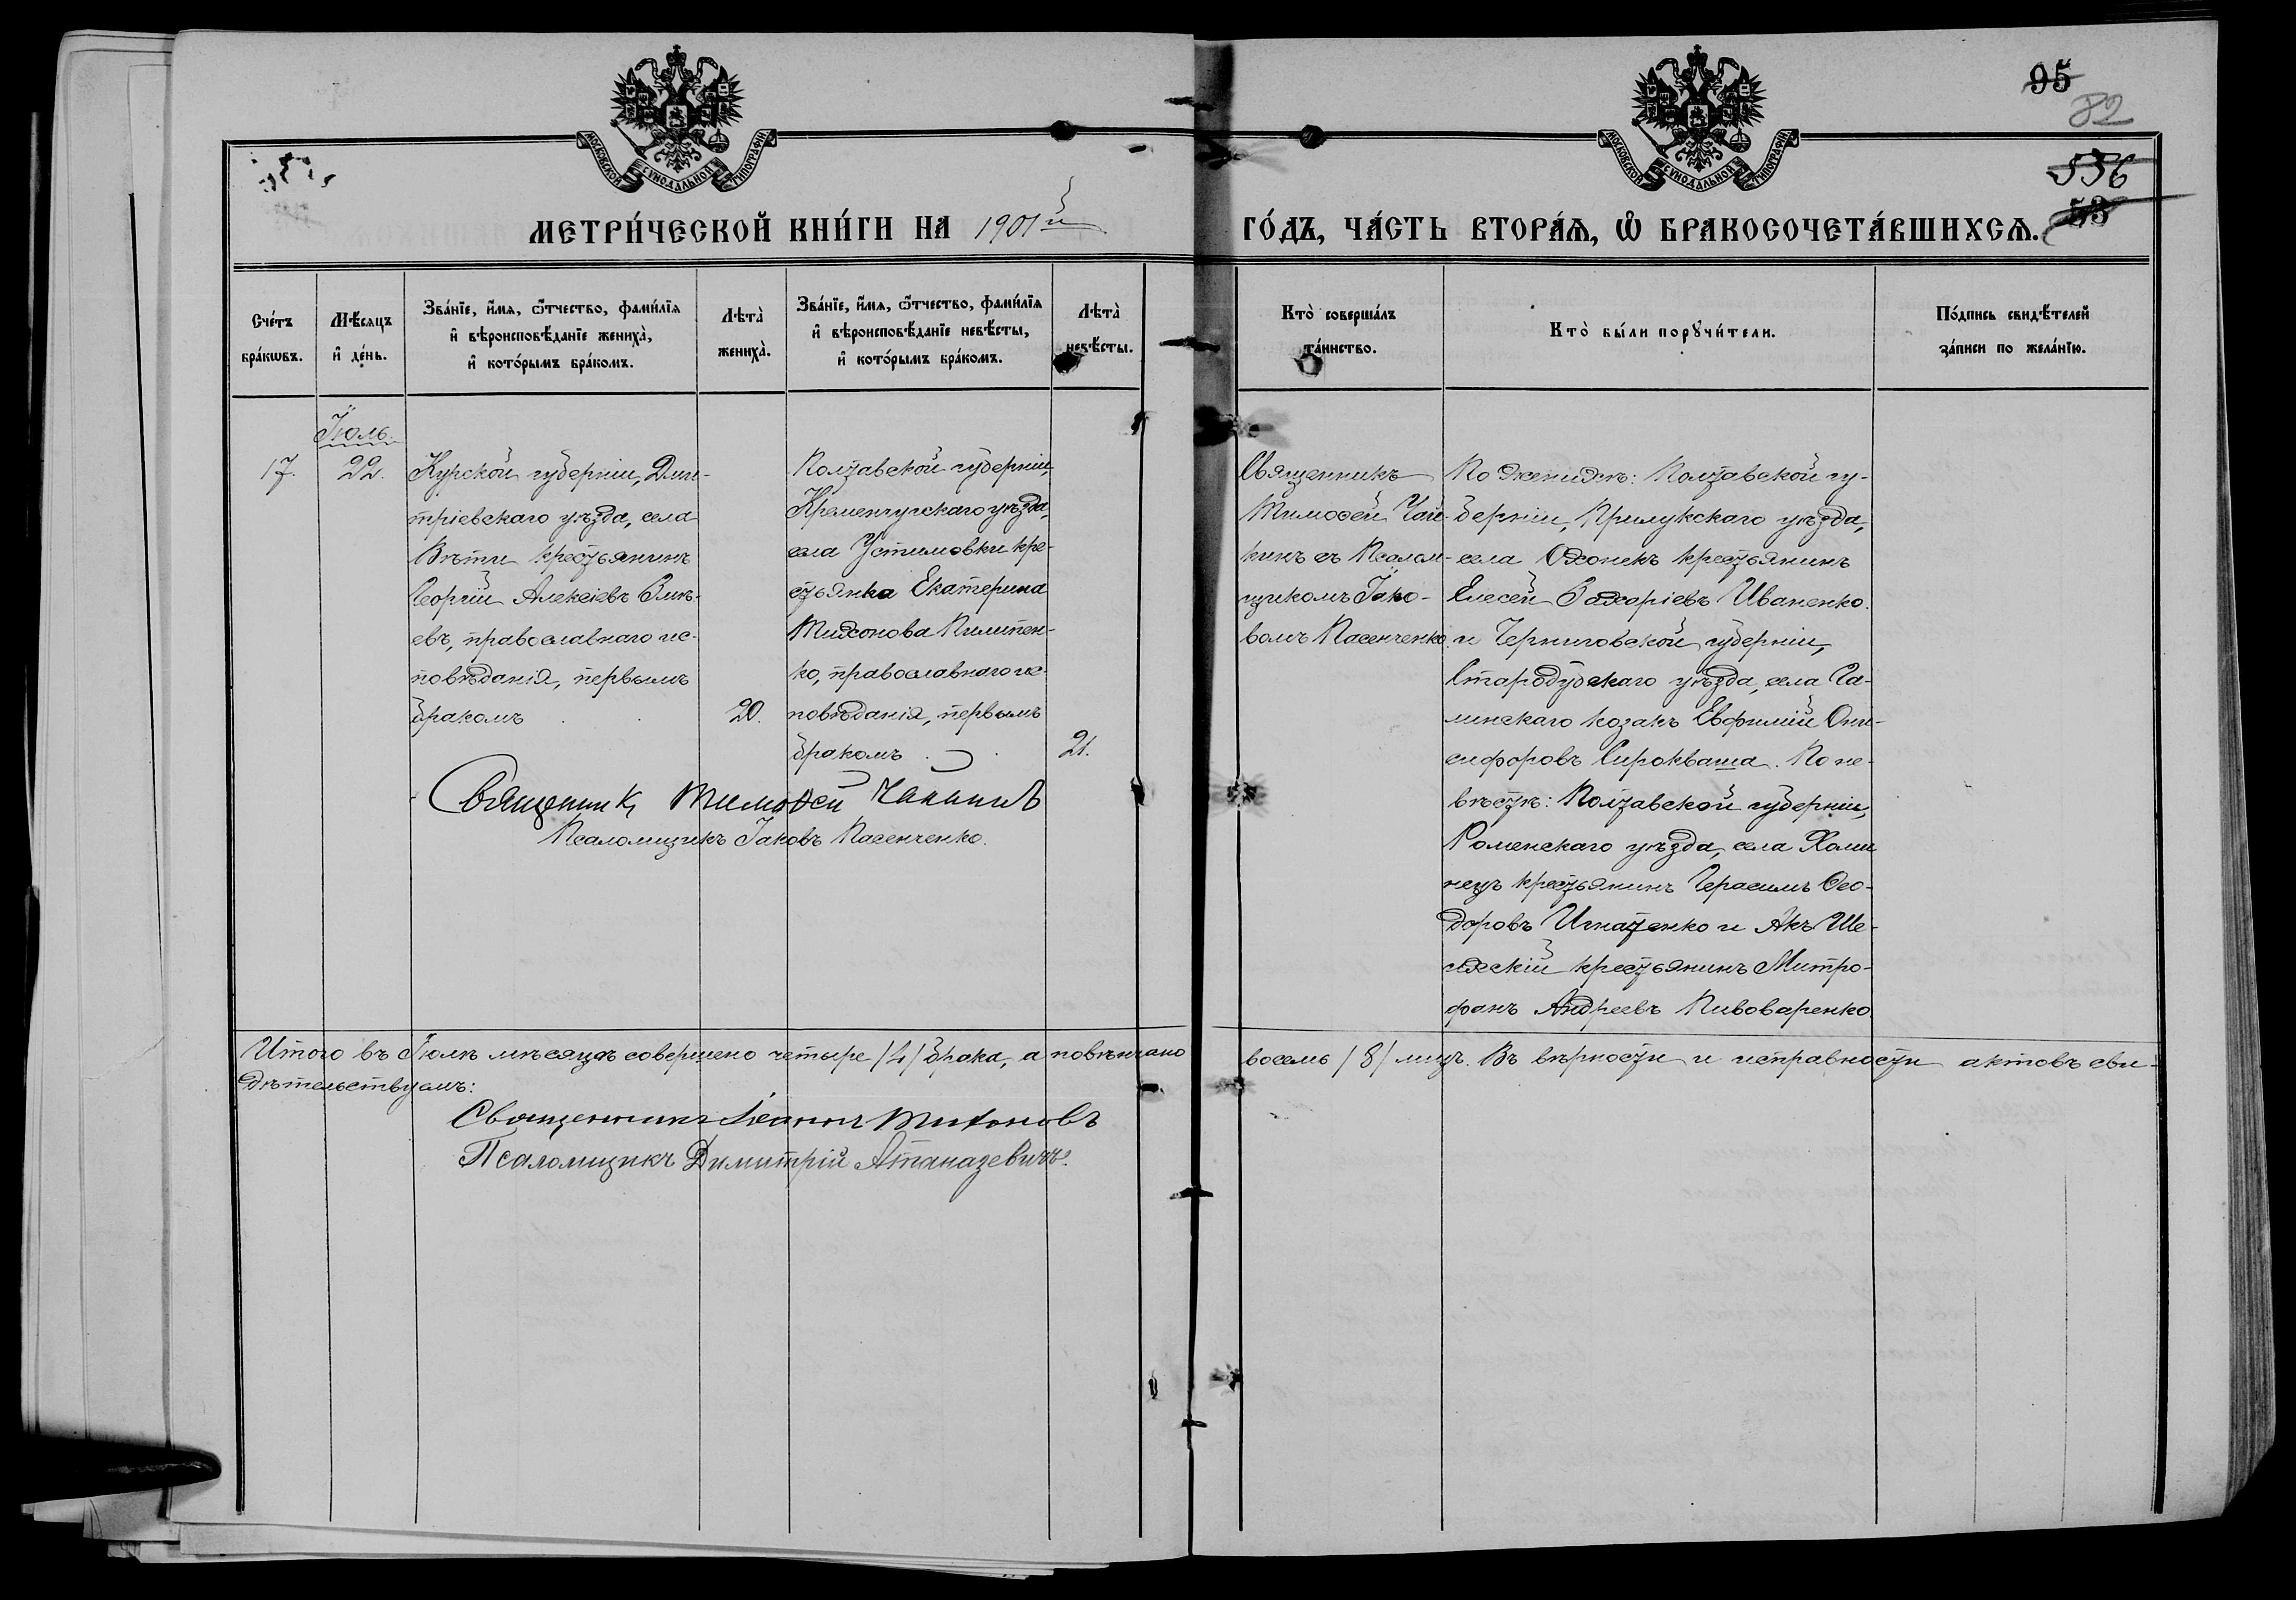 95
82
556
53
МОСКОВСКОЙ СѴНОДАЛЬНОЙ ТИПОГРАФІИ
МОСКОВСКОЙ СѴНОДАЛЬНОЙ ТИПОГРАФІИ
МЕТРИ́ЧЕСКОЙ КНИ́ГИ НА 1901й
ГО́ДЪ, ЧА́СТЬ ВТОРА́Ѧ, Ѽ БРАКОСОЧЕТА́ВШИХСѦ.
Сче́тъ
бра́кѡвъ.
Мѣ́сяцъ
и҆ де́нь.
Зва́нїе, и҆́мѧ, ѻ҆́тчество, фами́лїѧ
и҆ вѣроисповѣ́данїе жениха̀,
и҆ кото́рымъ бра́комъ.
Лѣта̀
жениха̀.
Зва́нїе, и҆́мѧ, ѻ҆́тчество, фами́лїѧ
и҆ вѣроисповѣ́данїе невѣ́сты,
и҆ кото́рымъ бра́комъ.
Лѣта̀
невѣ́сты.
Кто̀ соверша́лъ
та́инство.
Кто̀ бы́ли порꙋчи́тели.
По́дпись свидѣ́телей
за́писи по жела́нїю.
Іюль.
17.
22.
Курской губерніи, Дми-
тріевскаго уѣзда, села
Вѣти крестьянинъ
Георгій Алексіевъ Змѣ-
евъ, православнаго ис-
повѣданія, первымъ
бракомъ
20.
Полтавской губерніи,
Кременчугскаго уѣзда,
села Устимовки кре-
стьянка Екатерина
Тихонова Пилипен-
ко, православнаго ис-
повѣданія, первымъ
бракомъ
21.
Священникъ
Тимоѳей Чай-
кинъ съ Псалом-
щикомъ Іако-
вомъ Пасенченко.
По женихѣ: Полтавской гу-
берніи, Прилукскаго уѣзда,
села Охонекъ крестьянинъ
Елесей Захаріевъ Иваненко
и Черниговской губерніи,
Стародубскаго уѣзда, села Га-
линскаго козакъ Евфимій Они-
сифоровъ Сирокваша. По не-
вѣстѣ: Полтавской губерніи,
Роменскаго уѣзда, села Хоми
нецъ крестьянинъ Герасимъ Ѳео-
доровъ Игнатенко и Акъ Ше-
сихскій крестьянинъ Митро-
фанъ Андреевъ Пивоваренко
Священникъ Тимоѳей Чайкинъ
Псаломщикъ Іаковъ Пасенченко.
Итого въ Іюлѣ мѣсяцѣ совершено четыре /4/ брака, а повѣнчано восемь /8/ лицъ. Въ вѣрности и исправности актовъ сви-
дѣтельствуемъ:
Священникъ Іоаннъ Тихоновъ
Псаломщикъ Димитрій Атаназевичъ.